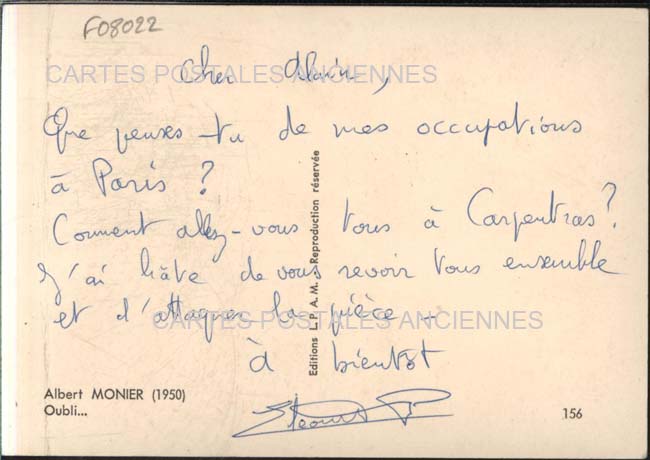 F08022
CARTES POSTALES ANCIENNES
Cher Alain,
Que penses-tu de mes occupations
à Paris ?
Comment allez-vous tous à Carpentras ?
J'ai hâte de vous revoir tous ensemble
et d'attaquer la pièce -
CARTES POSTALES ANCIENNES
à bientôt
Editions L. P. A. M. - Reproduction réservée
Albert MONIER (1950)
Oubli...
156